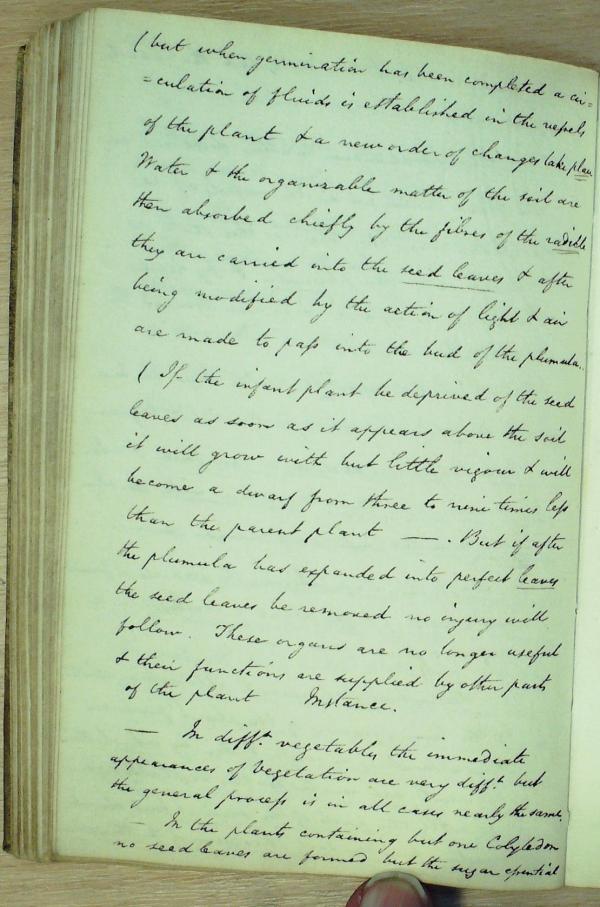 ( but when germination has been completed a cir=
=culation of fluids is established in the vessels
of the plant & a new order of changes take place
Water & the organizable matter of the soil are
then absorbed chiefly by the fibres of the radicle
they are carried into the seed leaves & after
being modified by the action of light & air
are made to pass into the bud of the plumula.
( If the infant plant be deprived of the seed
leaves as soon as it appears above the soil
it will grow with but little vigour & will
become a dwarf from three to nine times less
than the parent plant — . But if after
the plumula has expanded into perfect leaves
the seed leaves be removed no injury will
follow. These organs are no longer useful
& their functions are supplied by other parts
of the plant Instance.
— In difft. vegetables the immediate
appearances of Vegetation are very difft. but
the general process is in all cases nearly the same.
— In the plants containing but one Cotyledon
no seed leaves are formed but the sugar essential